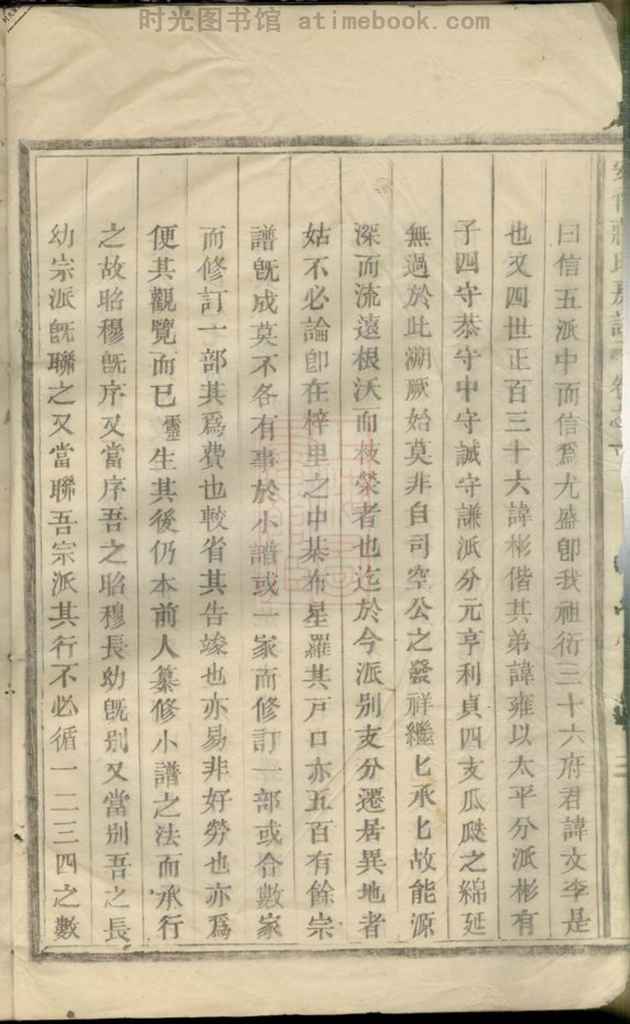 时光图书馆 atimebook.com
曰信五派中而信爲尤盛卽我祖衍三十六府君諱文李是
也又四世正百三十六諱彬偕其弟諱雍以太平分派彬有
子四守恭守中守誠守謙派分元亨利貞四支瓜瓞之綿延
無過於此溯厥始莫非自司空公之發祥繼匕承匕故能源
深而流遠根沃而枝榮者也迄於今派别支分遷居異地者
姑不必論卽在梓里之中棊布星羅其戸口亦五百有餘宗
譜旣成莫不各有事於小譜或一家而修訂一部或合數家
而修訂一部其爲費也較省其告竣也亦易非好勞也亦爲
便其觀覽而已靈生其後仍本前人纂修小譜之法而承行
之故昭穆旣序又當序吾之昭穆長幼旣别又當别吾之長
幼宗派旣聯之又當聯吾宗派其行不必循一二三四之數